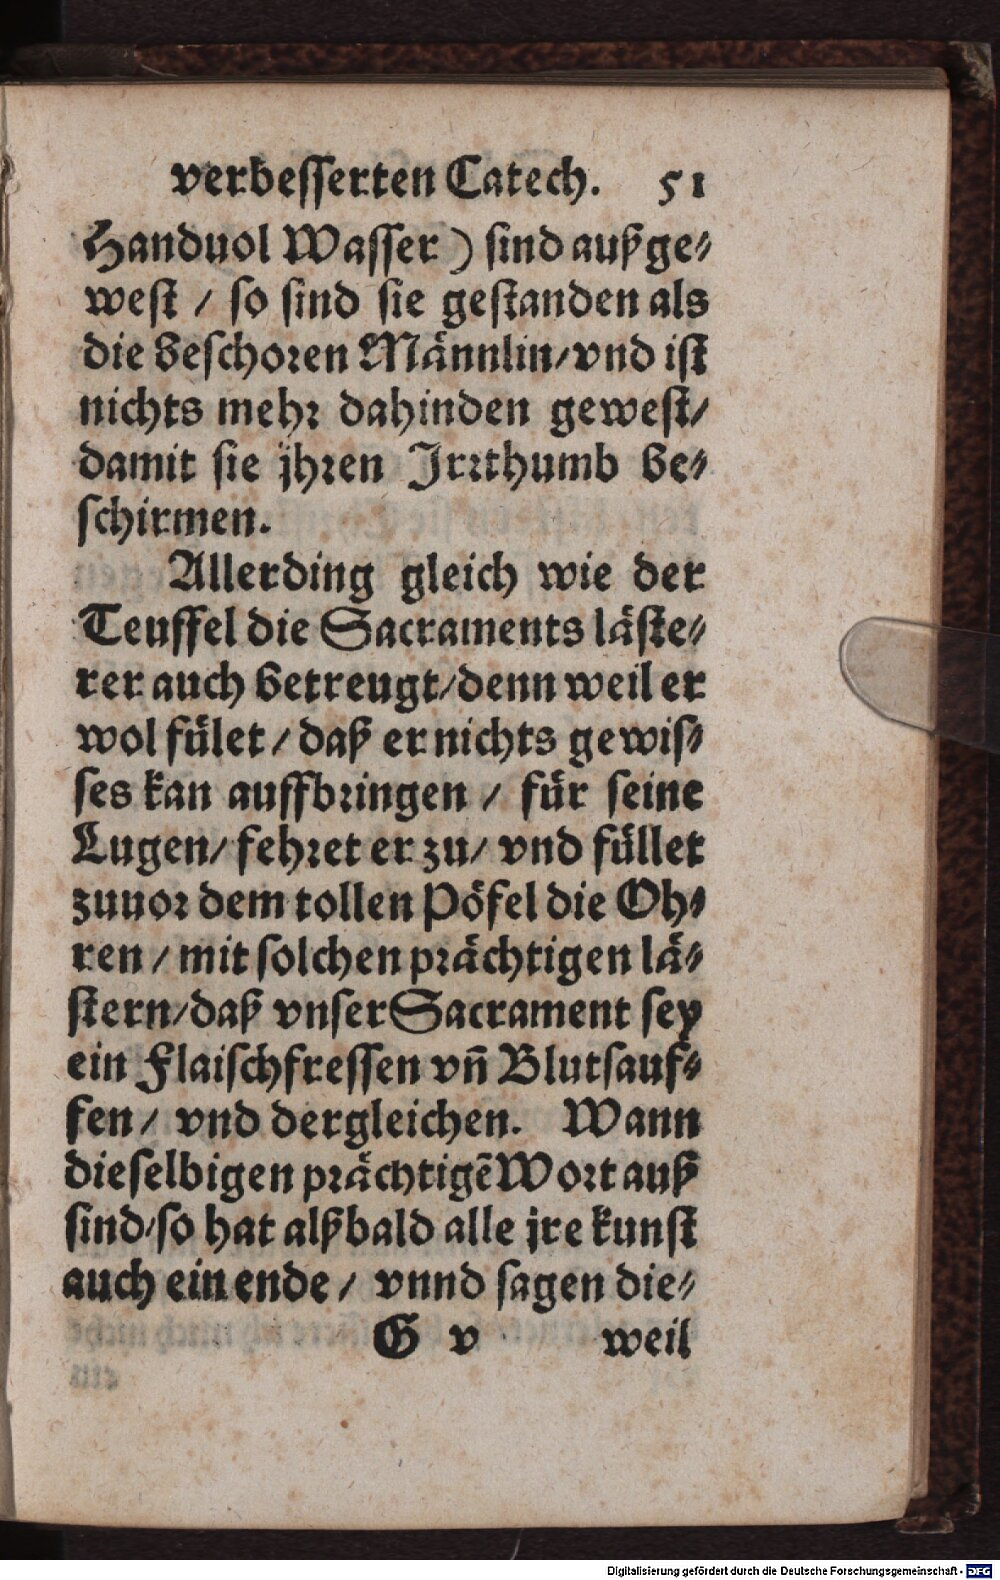 verbesserten Catech. 51
Handuol Wasser) sind außge⸗
west / so sind sie gestanden als
die beschoren Männlin/vnd ist
nichts mehr dahinden gewest/
damit sie jhren Jrrthumb be⸗
schirmen.
Allerding gleich wie der
Teuffel die Sacraments läste⸗
rer auch betreugt/denn weil er
wol fület / daß er nichts gewis⸗
ses kan auffbringen / für seine
Lugen/ fehret er zu/ vnd füllet
zuuor dem tollen Pöfel die Oh⸗
ren / mit solchen prächtigen lä⸗
stern/daß vnser Sacrament sey
ein Flaischfressen vñ Blutsauf⸗
fen / vnd dergleichen. Wann
dieselbigen prächtigẽ Wort auß
sind/so hat alßbald alle jre kunst
auch ein ende / vnnd sagen die⸗
G v weil
Digitalisierung gefördert durch die Deutsche Forschungsgemeinschaft - DFG